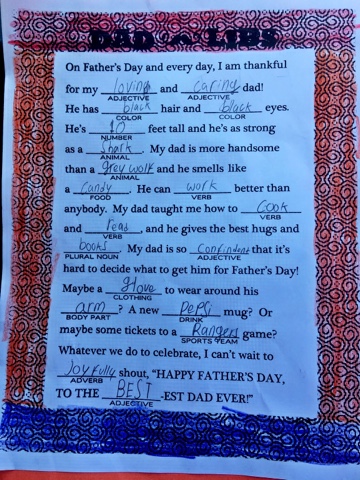 DAD LIBS
On Father's Day and every day, I am thankful
for my loving and caring dad!
ADJECTIVE ADJECTIVE
He has black hair and black eyes.
COLOR COLOR
He's 10 feet tall and he's as strong
NUMBER
as a Shark. My dad is more handsome
ANIMAL
than a grey wolf and he smells like
ANIMAL
a candy. He can work better than
FOOD VERB
anybody. My dad taught me how to cook
VERB
and read, and he gives the best hugs and
VERB
books. My dad is so confindent that it's
PLURAL NOUN ADJECTIVE
hard to decide what to get him for Father's Day!
Maybe a glove to wear around his
CLOTHING
arm? A new Pepsi mug? Or
BODY PART DRINK
maybe some tickets to a Rangers game?
SPORTS TEAM
Whatever we do to celebrate, I can't wait to
Joyfully shout, "HAPPY FATHER'S DAY,
ADVERB
TO THE BEST-EST DAD EVER!"
ADJECTIVE